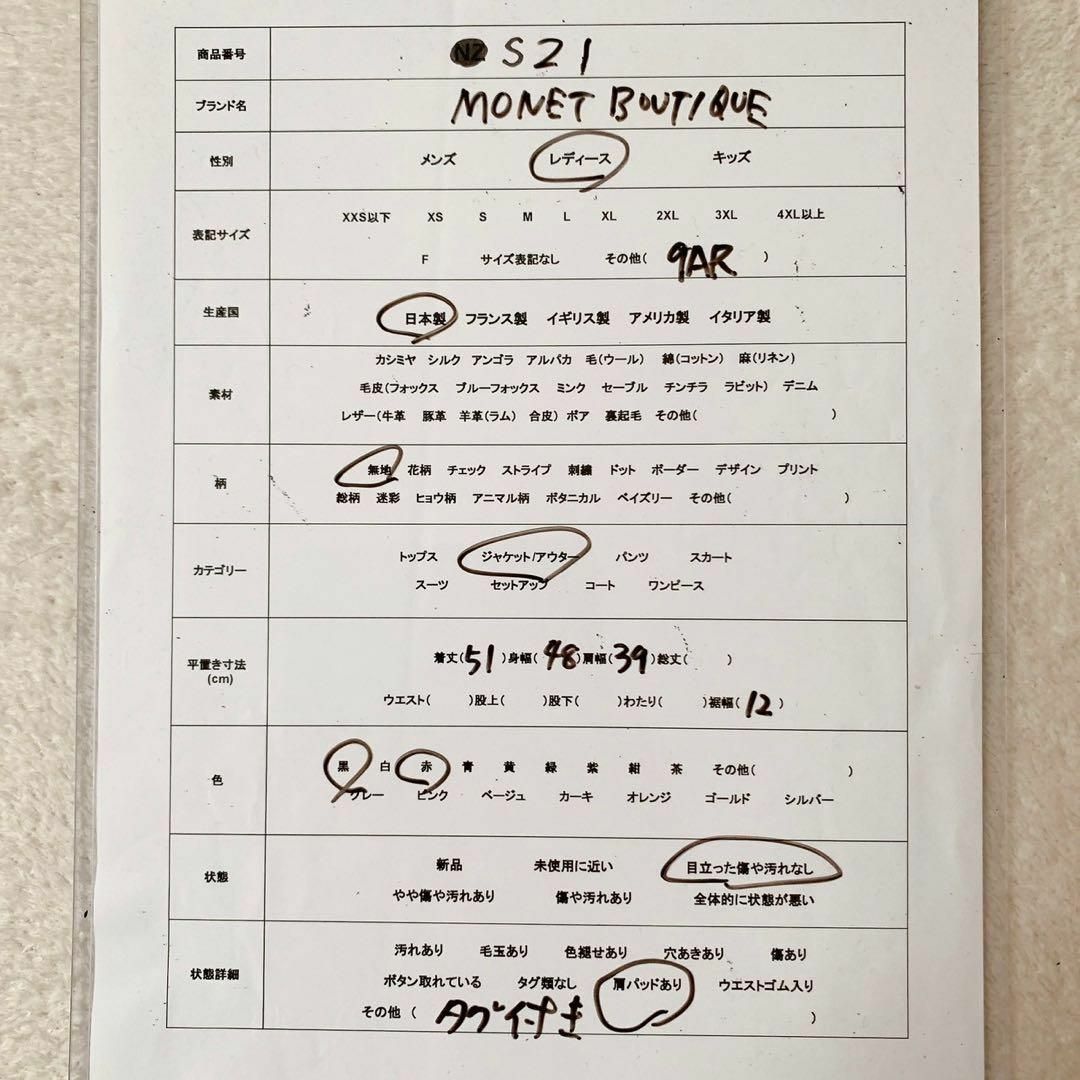 商品番号 NZ S21
ブランド名 MONET BOUTIQUE
性別 メンズ レディース キッズ
表記サイズ XXS以下 XS S M L XL 2XL 3XL 4XL以上
F サイズ表記なし その他( 9AR )
生産国 日本製 フランス製 イギリス製 アメリカ製 イタリア製
素材 カシミヤ シルク アンゴラ アルパカ 毛(ウール) 綿(コットン) 麻(リネン)
毛皮(フォックス ブルーフォックス ミンク セーブル チンチラ ラビット) デニム
レザー(牛革 豚革 羊革(ラム) 合皮) ボア 裏起毛 その他( )
柄 無地 花柄 チェック ストライプ 刺繍 ドット ボーダー デザイン プリント
総柄 迷彩 ヒョウ柄 アニマル柄 ボタニカル ペイズリー その他( )
カテゴリー トップス ジャケット/アウター パンツ スカート
スーツ セットアップ コート ワンピース
平置き寸法
(cm)
着丈(51)身幅(48)肩幅(39)総丈( )
ウエスト( )股上( )股下( )わたり( )裾幅(12)
色 黒 白 赤 青 黄 緑 紫 紺 茶 その他( )
グレー ピンク ベージュ カーキ オレンジ ゴールド シルバー
状態 新品 未使用に近い 目立った傷や汚れなし
やや傷や汚れあり 傷や汚れあり 全体的に状態が悪い
状態詳細 汚れあり 毛玉あり 色褪せあり 穴あきあり 傷あり
ボタン取れている タグ類なし 肩パッドあり ウエストゴム入り
その他 ( タグ付き )